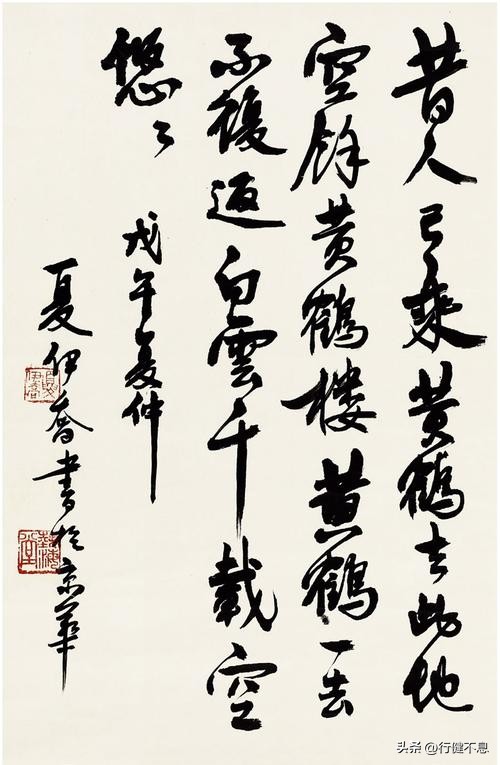 昔人已乘黄鶴去此地
空餘黄鶴樓黄鶴一去
不復返白雲千載空
悠々
戊午夏仲
夏伊喬書於京華
头条 @行健不息